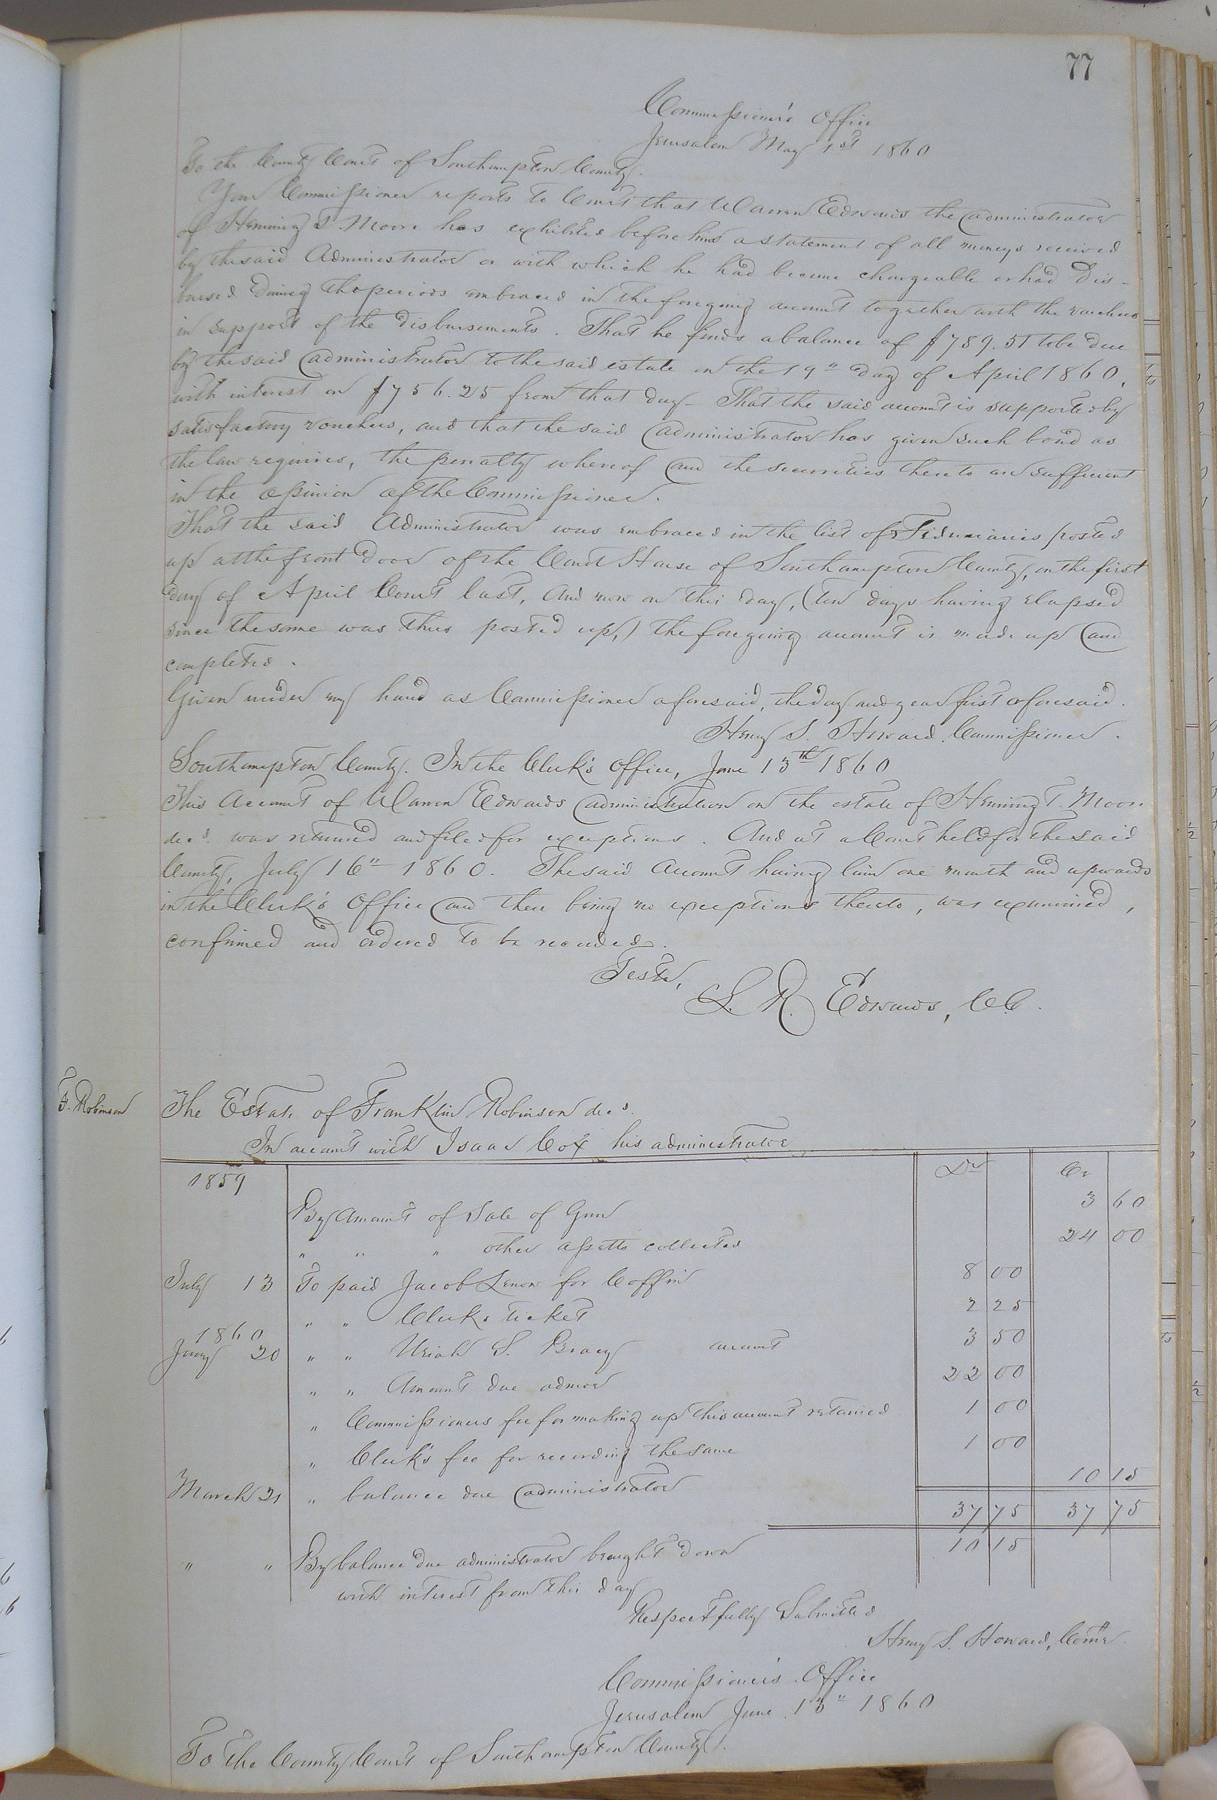 77
Commissioner's Office
Jerusalem May 1st 1860
To the County Court of Southampton County.
Your Commissioner reports to Court that Warren Edwards the administrator
of Henning T. Moore has exhibited before him a statement of all moneys received
by the said Administrator or with which he had become chargeable or had dis-
bursed during the periods embraced in the foregoing account together with the vouchers
in support of the disbursements. That he finds a balance of $789.51 to be due
by the said administrator to the said estate on the 19" day of April 1860,
with interest on $756.25 from that day - That the said account is supported by
satisfactory vouchers, and that the said administrator has given such bond as
the law requires, the penalty whereof and the securities thereto are sufficient
in the opinion of the Commissioner.
That the said Administrator was embraced in the list of Fiduciaries posted
up at the front Door of the Court House of Southampton County, on the first
day of April Court last, And now on this day, (ten days having elapsed
since the same was thus posted up,) the foregoing account is made up and
completed.
Given under my hand as Commissioner aforesaid, the day and year first aforesaid.
Henry S. Howard, Commissioner.
Southampton County. In the Clerk's Office, June 13th 1860
This Account of Warren Edwards administration on the estate of Henning T. Moore
decd. was returned and filed for exceptions. And at a Court held for the said
County, July 16" 1860. The said Account having lain one month and upwards
in the Clerk's Office and there being no exceptions thereto, was examined,
confirmed and ordered to be recorded.
Teste,
L. R. Edwards, C.C.
F. Robinson
The Estate of Franklin Robinson decd.
In account with Isaac Cox his administrator
1859 Dr Cr
By Amount of Sale of Gun 3 60
" " " other assetts collected 24 00
July 13 To paid Jacob for Coffin 8 00
" " Clerks ticket 2 25
1860
Jany 20 " " Uriah S. Bracy account 3 50
" " Amount due admor 22 00
" Commissioners fee for making up this account retained 1 00
" Clerk's fee for recording the same 1 00
March 21 " balance due administrator 10 15
37 75 37 75
" " By balance due administrator brought down 10 15
with interest from this day
Respectfully Submitted
Henry S. Howard, Comr.
Commissioner's Office
Jerusalem June 13" 1860
To the County Court of Southampton County.